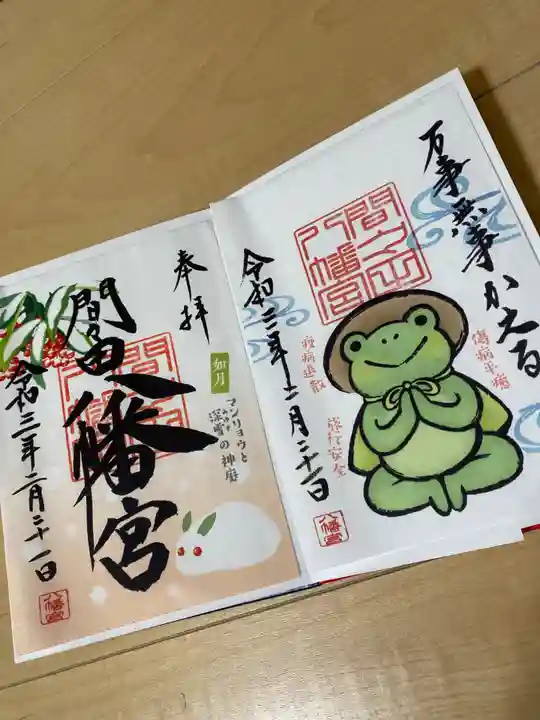 万事無事かえる
間々田
八幡宮
傷病平癒
旅行安全
疫病退散
令和三年二月二十一日
八幡宮
奉拝
間々田八幡宮
如月
マンリョウと
深雪の神庭
みゆき
令和三年二月二十一日
八幡宮